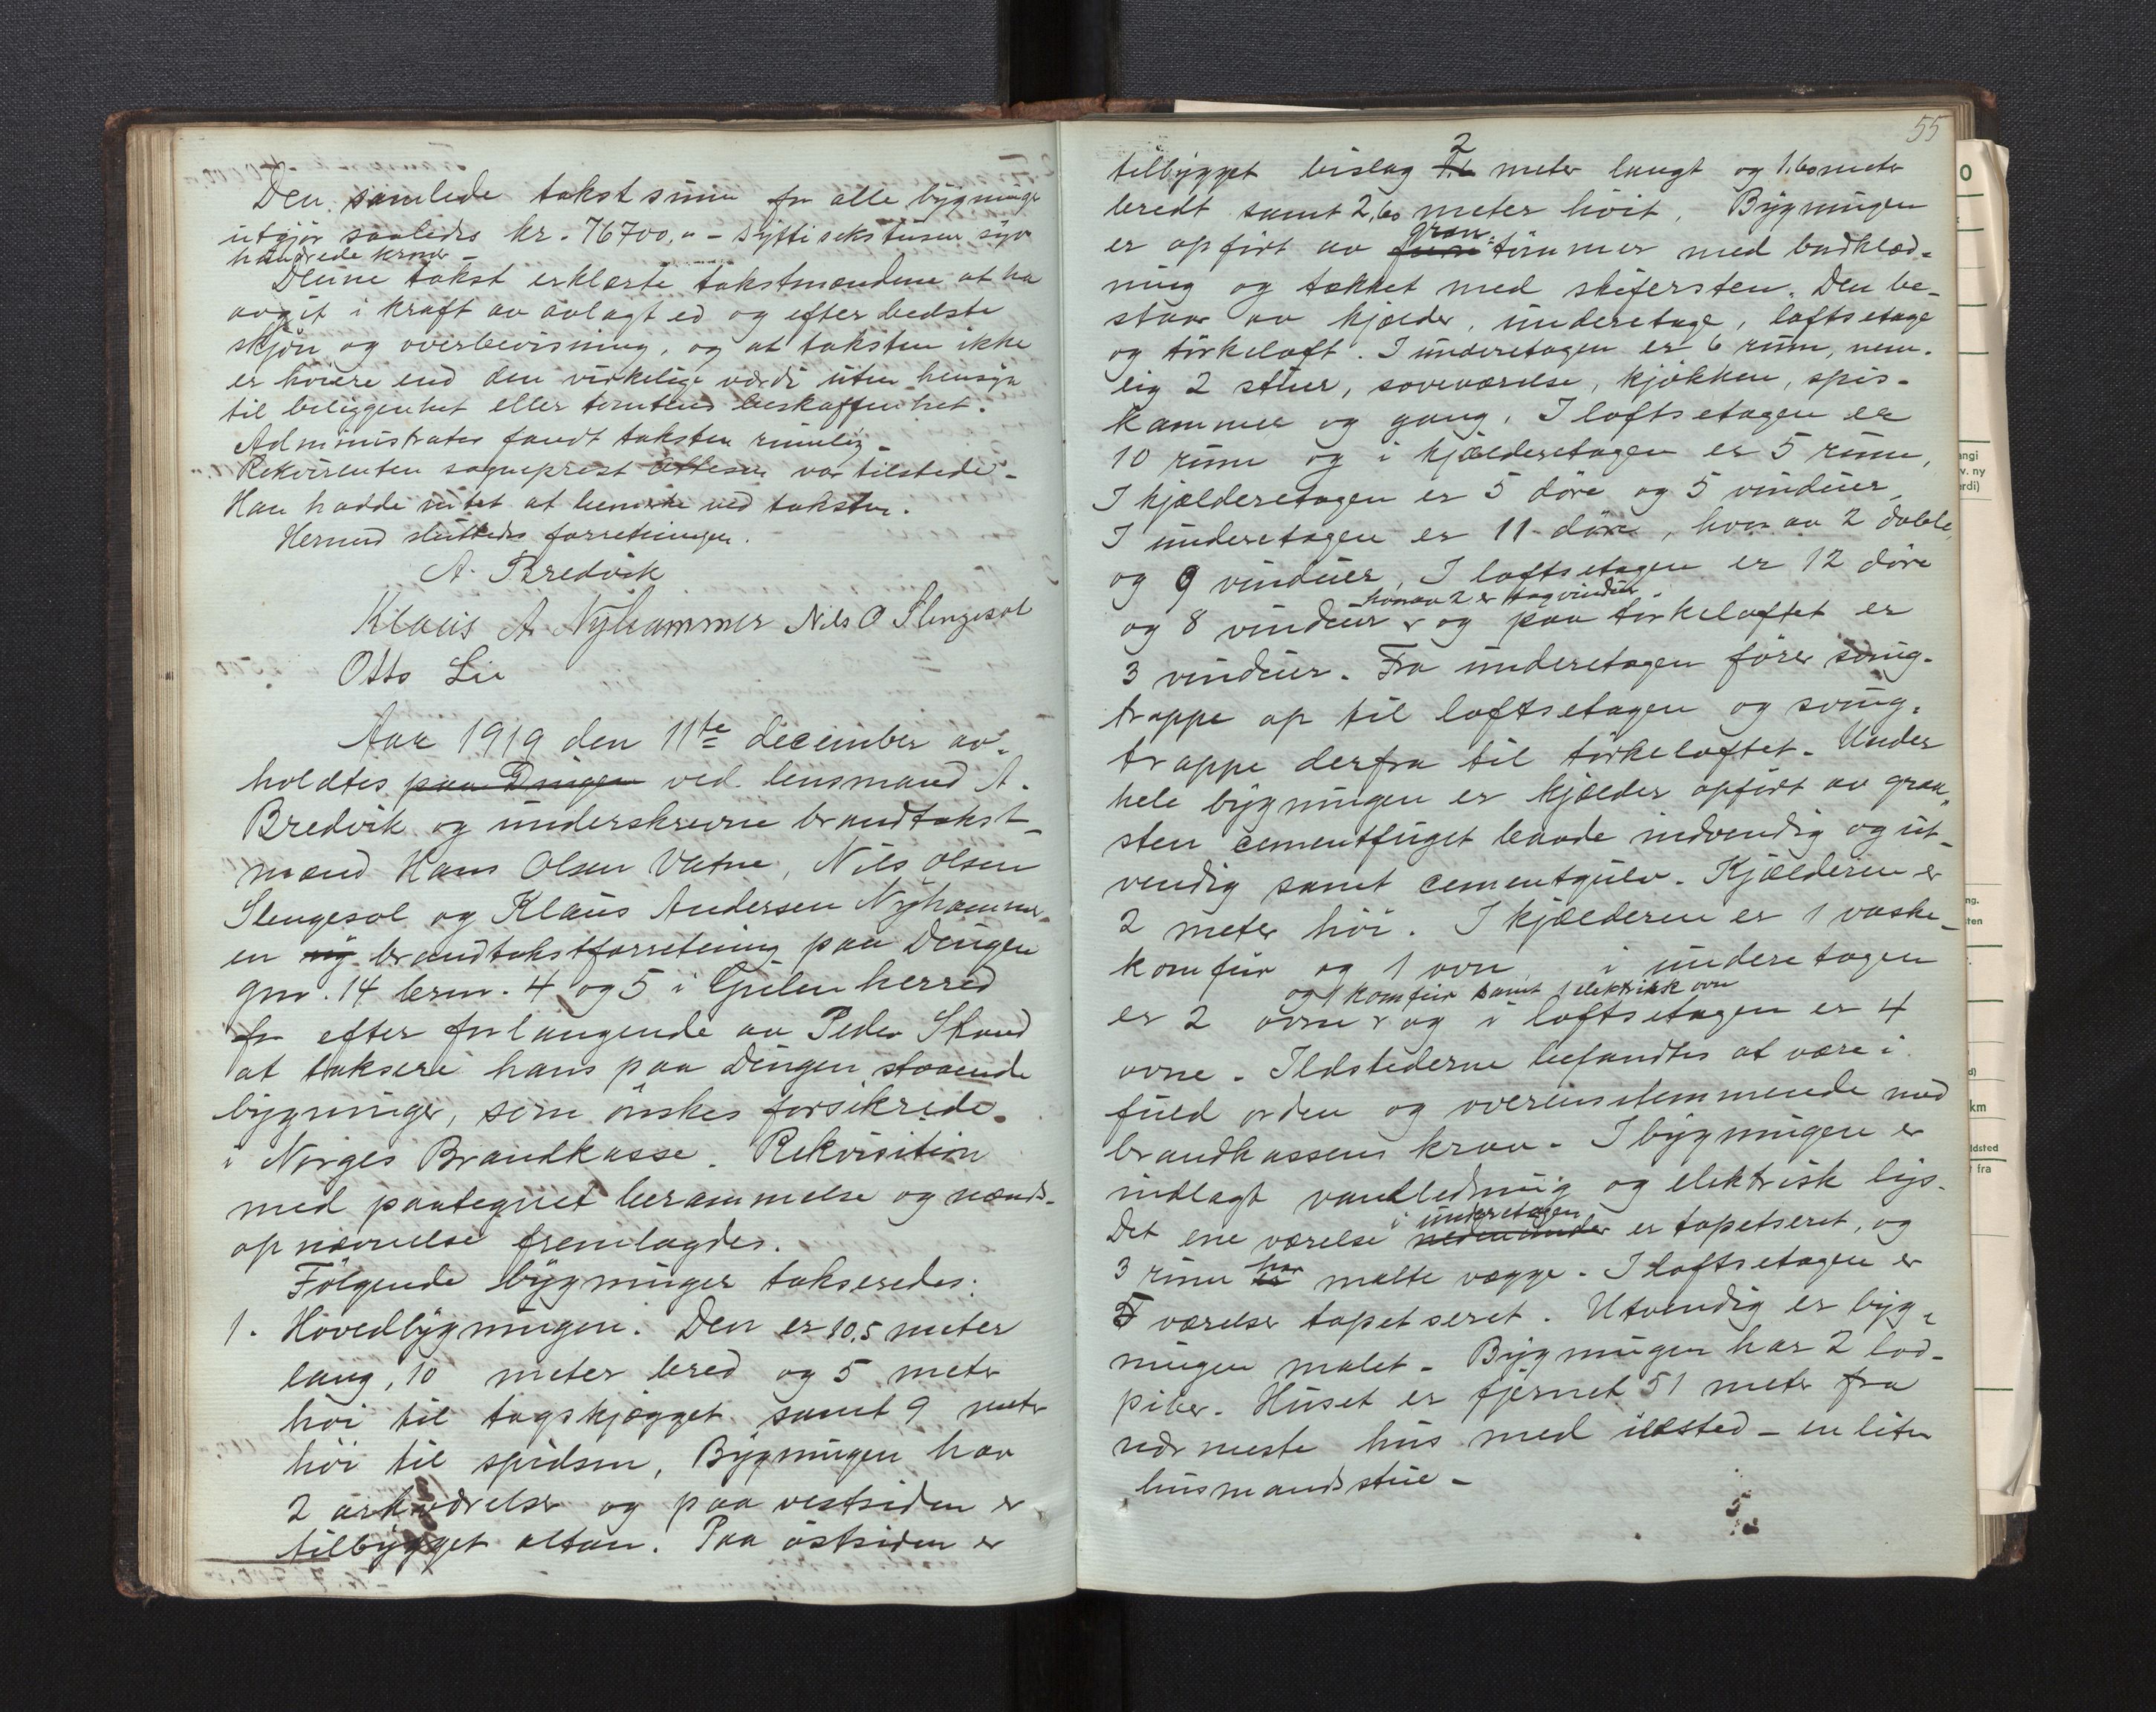 Den samlede takstsum for alle bygninge
utgjør saaledes kr. 76700,"- syttisekstusen syv
hundrede kroner -
Denne takst erklærte takstmændene at ha
avgit i kraft av avlagt ed og efter bedste
skjøn og overbevisning, og at taksten ikke
er høiere end den virkelige værdi uten hensyn
til beliggenhet eller tomtens beskaffenhet.
Administrator fandt taksten rimelig -
Rekvirenten sogneprest var tilstede -
Han hadde intet at bemerke ved taksten.
Hermed sluttedes forretningen.
A. Bredvik
Klaus A Nyhammer Nils O Slengesol
Otto Lie
Aar 1919 den 11te december av-
holdtes paa Dingen ved lensmand A.
Bredvik og underskrevne brandtakst-
mænd Hans Olsen Vatne, Nils Olsen
Slengesol og Klaus Andersen Nyhammer
en ny brandtakstforretning paa Dingen
gnr. 14 brnr. 4 og 5 i Gulen herred
for efter forlangende av Peder Skand
at taksere hans paa Dingen staaende
bygninger, som ønskes forsikrede
i Norges Brandkasse. Rekvisition
med paategnet berammelse og mænds-
opnævnelse fremlagdes.
Følgende bygninger takseredes:
1. Hovedbygningen. Den er 10,5 meter
lang, 10 meter bred og 5 meter
høi til tagskjægget samt 9 meter
høi til spidsen, Bygningen har
2 arkværelser og paa vestsiden er
tilbygget altan. Paa østsiden er
55
2
tilbygget bislag 1.6 meter langt og 1,60 meter
bredt samt 2,60 meter høit, Bygningen
gran-
er opført av furu tømmer med bordklæd-
ning og tækket med skifersten. Den be-
staar av kjælder, underetage, loftsetage
og tørkeloft. I underetagen er 6 rum, nem-
lig 2 stuer, soveværelse, kjøkken, spis-
kammer og gang. I loftsetagen er
10 rum og i kjælderetagen er 5 rum,
I kjælderetagen er 5 døre og 5 vinduer,
I underetagen er 11 døre, hvorav 2 doble,
og 9 vinduer, I loftsetagen er 12 døre
hvorav 2 er tagvinduer
og 8 vinduer og paa tørkeloftet er
3 vinduer. Fra underetagen fører sving-
trappe op til loftsetagen og sving-
trappe derfra til tørkeloftet. Under
hele bygningen er kjælder opført av graa-
sten cementfuget baade indvendig og ut-
vendig samt cementgulv. Kjælderen er
2 meter høi. I kjælderen er 1 vaske-
komfur og 1 ovn, i underetagen
og 1 komfur samt 1 elektrisk ovn
er 2 ovne og i loftsetagen er 4
ovne. Ildstederne befandtes at være i
fuld orden og overensstemmende med
brandkassens krav. I bygningen er
indlagt vandledning og elektrisk lys.
i underetagen
Det ene værelse nedenunder er tapetseret, og
har
3 rum er malte vægge. I loftsetagen er
5 værelser tapetseret. Utvendig er byg-
ningen malet. Bygningen har 2 lod-
piper. Huset er fjernet 51 meter fra
nærmeste hus med ildsted - en liten
husmandsstue -